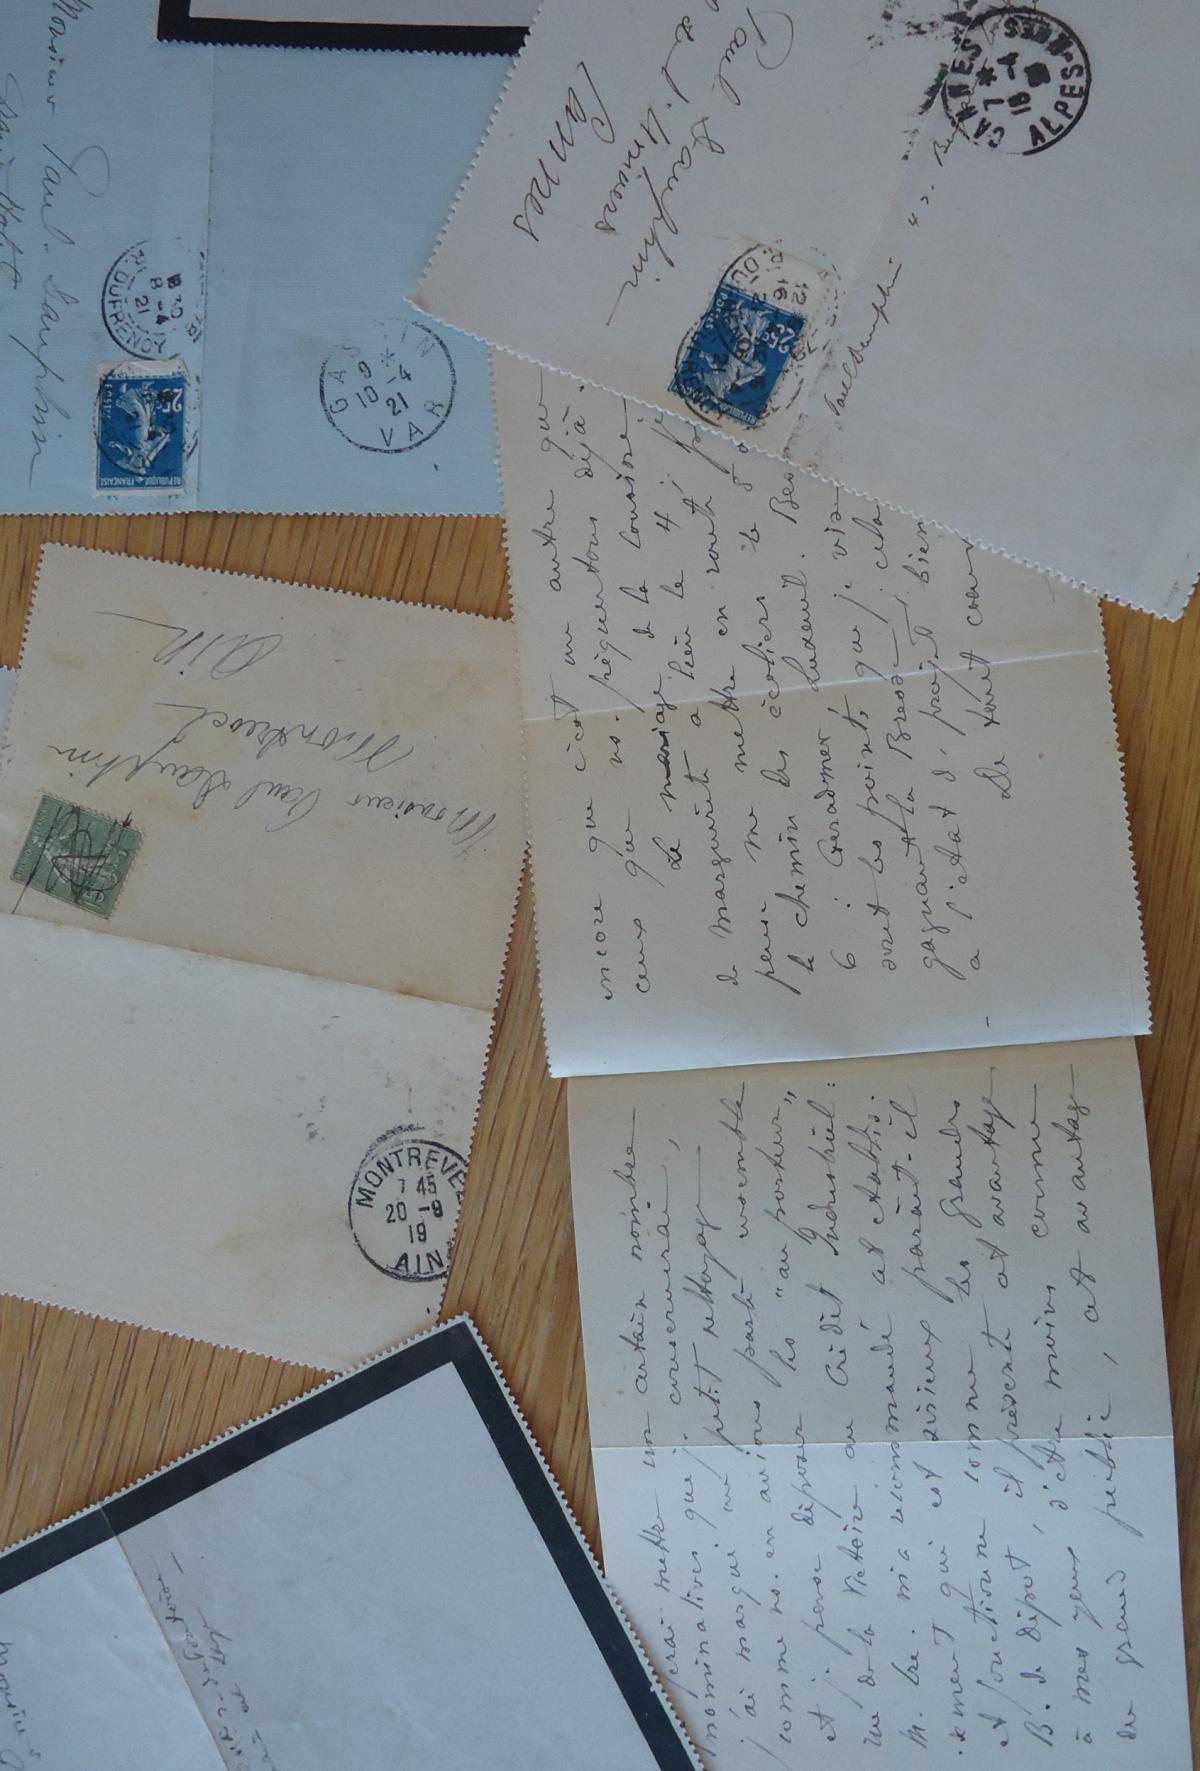 Monsieur Paul Dauphin
R. DUFRENOY
8 -4
21
25c
POSTES
REPUBLIQUE FRANÇAISE
9 *
10 -4
21
VAR
Paul Dauphin
Cannes
CANNES
7 * -4
ALPES-MMES
25c
POSTES
Paul Dauphin
encore que c'est un autre que
ceux que ns. fréquentons déjà.
Le mariage de la cousine
de Marguerite a lieu le 4 ; je
pense me mettre en route
le chemin des écoliers le 5
6 : Geradmer Luxeuil. Bes
sont les points que je vis
gagnant la Bresse ; cela
a l'état d' projet. bien
De tout cœur
Monsieur Paul Dauphin
Montrevel
Ain
MONTREVEL
7 45
20 -8
19
AIN
ferai mettre un certain nombre
nominatives que je conserverai ;
j'ai marqué un petit nettoyage
comme ns. en avions parlé ensemble
et je pense déposer les "au porteur"
rue de la Victoire au Crédit Industriel :
M. Bre. m'a recommandé cet établis-
sement qui est sérieux parait-il
et fonctionne comme les grandes
B. de dépôt, il présente cet avantage
à mes yeux, d'être moins connu
du grand public, cet avantage